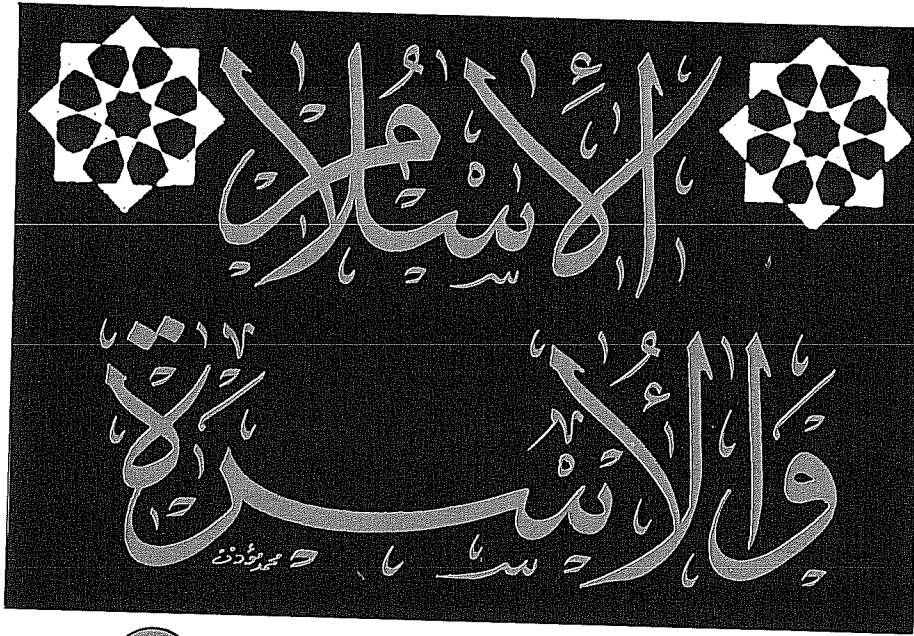 الأسلام
والأسرة
محمد مؤذن